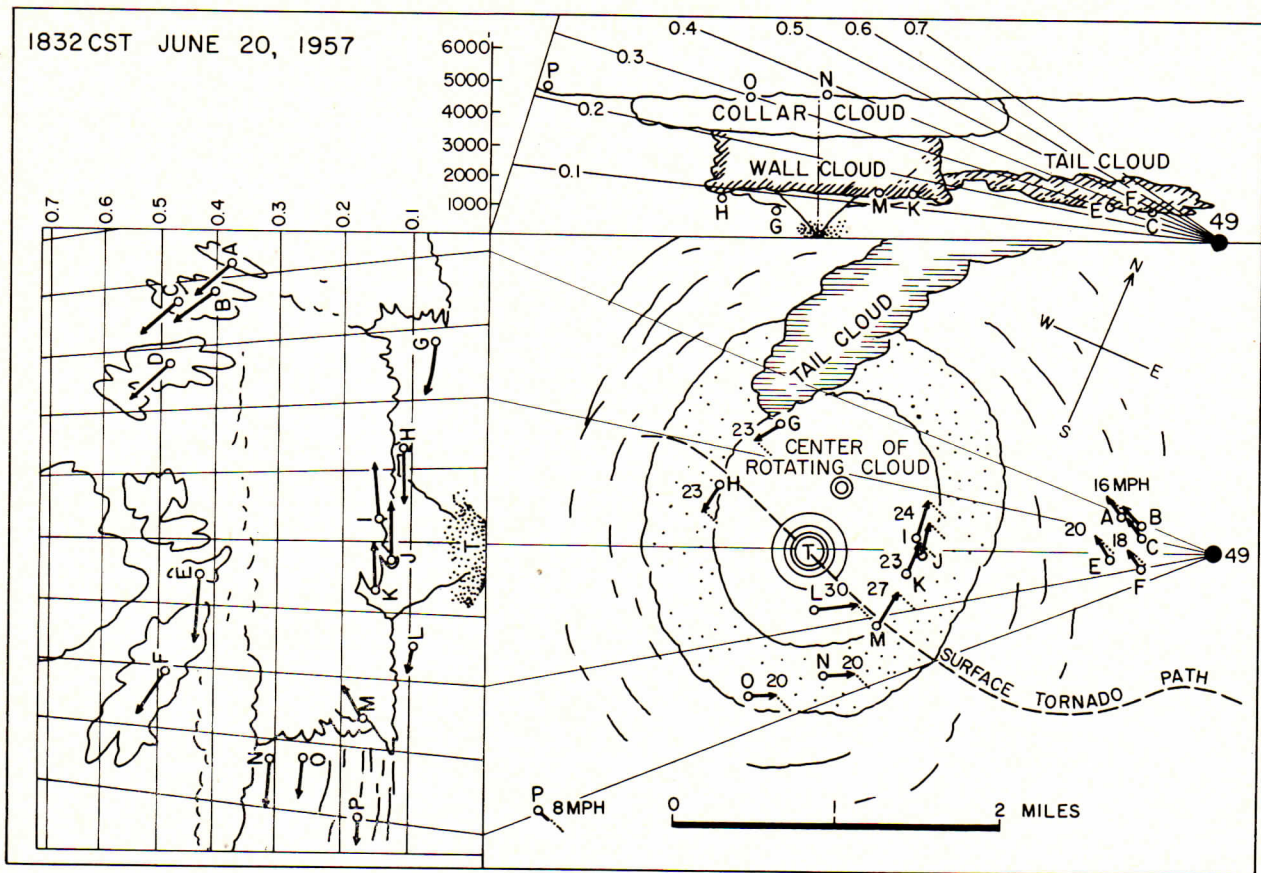 1832 CST JUNE 20, 1957
6000
5000
4000
3000
2000
1000
0.1
0.2
0.3
0.4
0.5
0.6
0.7
P
O
N
COLLAR CLOUD
WALL CLOUD
TAIL CLOUD
H
G
M
K
E
F
C
49
0.7
0.6
0.5
0.4
0.3
0.2
0.1
A
B
C
D
G
H
I
J
K
T
E
L
F
M
N
O
P
TAIL CLOUD
N
W
E
S
23
G
CENTER OF
ROTATING CLOUD
23
H
16 MPH
A
B
24
I
20
18
C
T
J
49
E
F
23
K
L
30
27
M
SURFACE TORNADO PATH
N
20
O
20
P
8 MPH
0
1
2 MILES